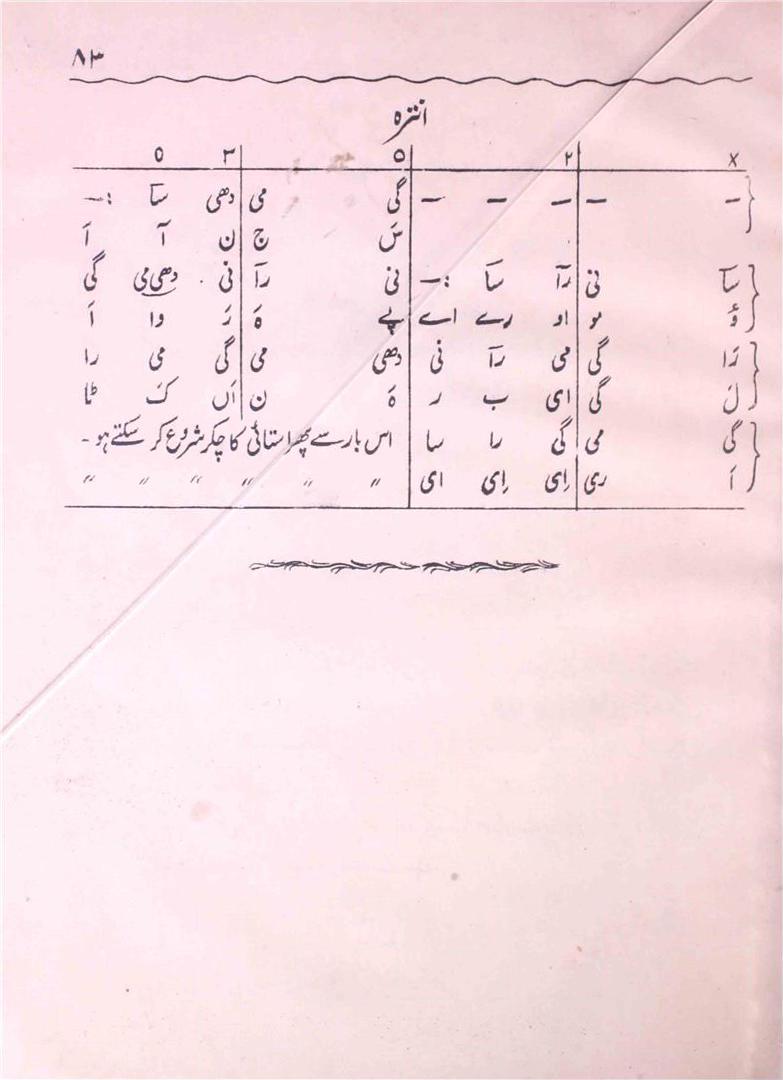 ۸۳
انترہ
x ۲ ٥ ۳ ٥
- - - - - گی می دھی سآ :-
سَ ج ن آ اَ
سآ نی رآ سآ :- نی رآ نی دھی می گی
مو او رے اے پے ہَ رَ وا اَ
رَا گی می رآ نی دھی می گی می را
لَ گی ای ب ر ہَ ن اَں کَ ٹا
گی می گی را سا اس بار سے پھر استائی کا چکر شروع کر سکتے ہو -
اَ ری اِی اِی ای 〃 〃 〃 〃 〃 〃